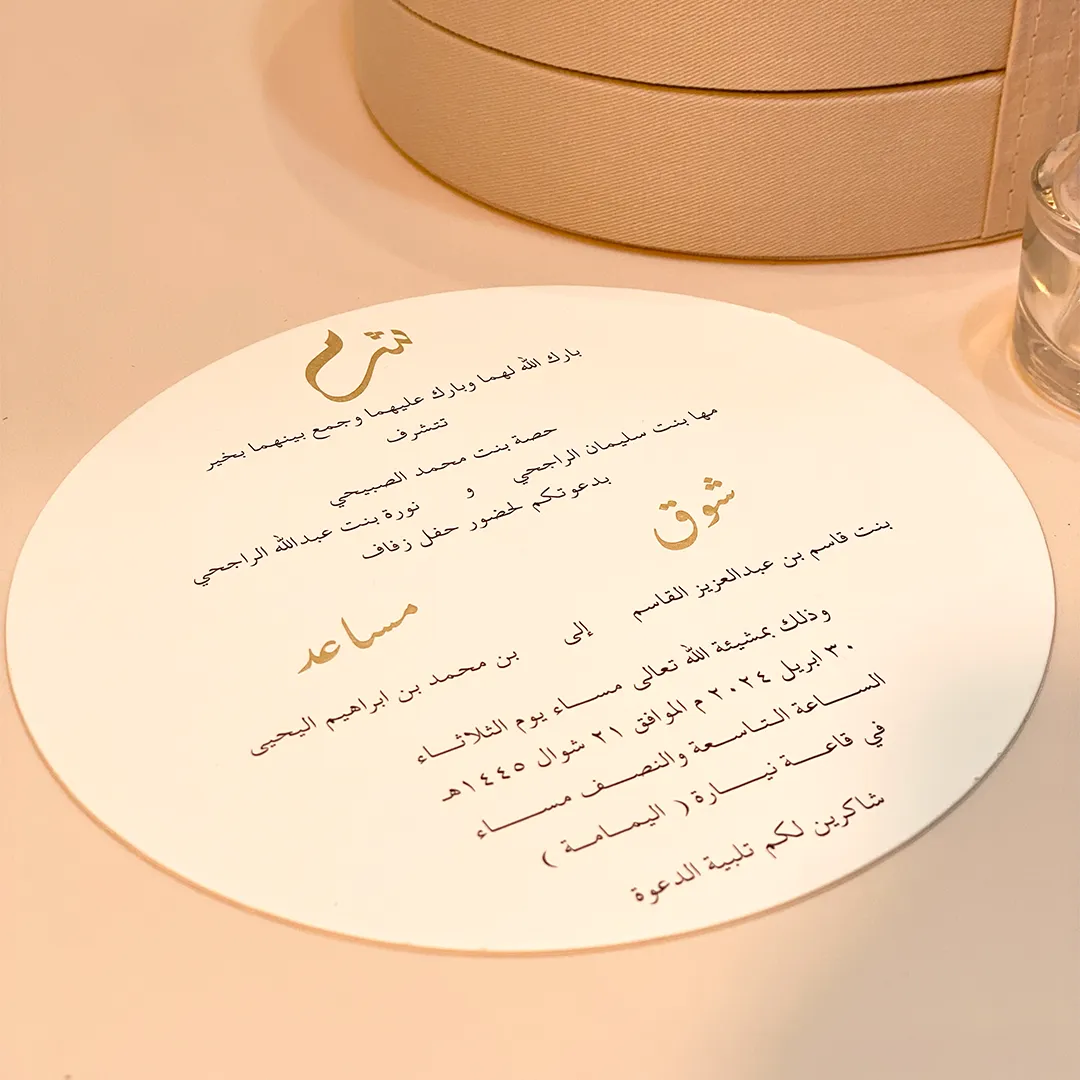 بارك الله لهما وبارك عليهما وجمع بينهما بخير
تتشرف
حصة بنت محمد الصبيحي
مها بنت سليمان الراجحي و نورة بنت عبدالله الراجحي
بدعوتكم لحضور حفل زفاف
شوق
بنت قاسم بن عبدالعزيز القاسم
إلى
مساعد
بن محمد بن ابراهيم اليحيى
وذلك بمشيئة الله تعالى مساء يوم الثلاثاء
٣٠ ابريل ٢٠٢٤ م الموافق ٢١ شوال ١٤٤٥هـ
الساعة التاسعة والنصف مساء
في قاعة نيارة ( اليمامة )
شاكرين لكم تلبية الدعوة